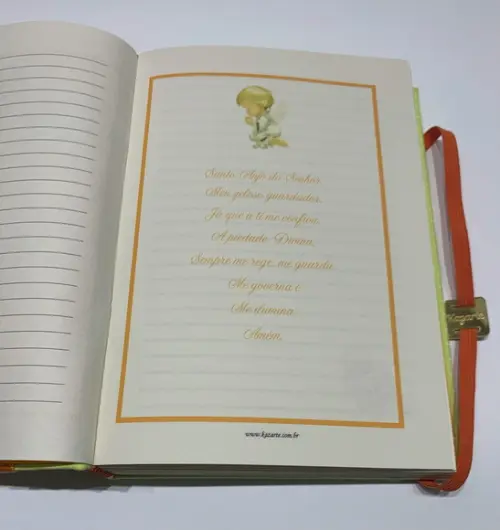 Santo Anjo do Senhor
Meu zeloso guardador,
Já que a ti me confiou,
A piedade Divina,
Sempre me rege, me guarda,
Me governa e
Me ilumina
Amém.
www.kazarte.com.br
Kazarte